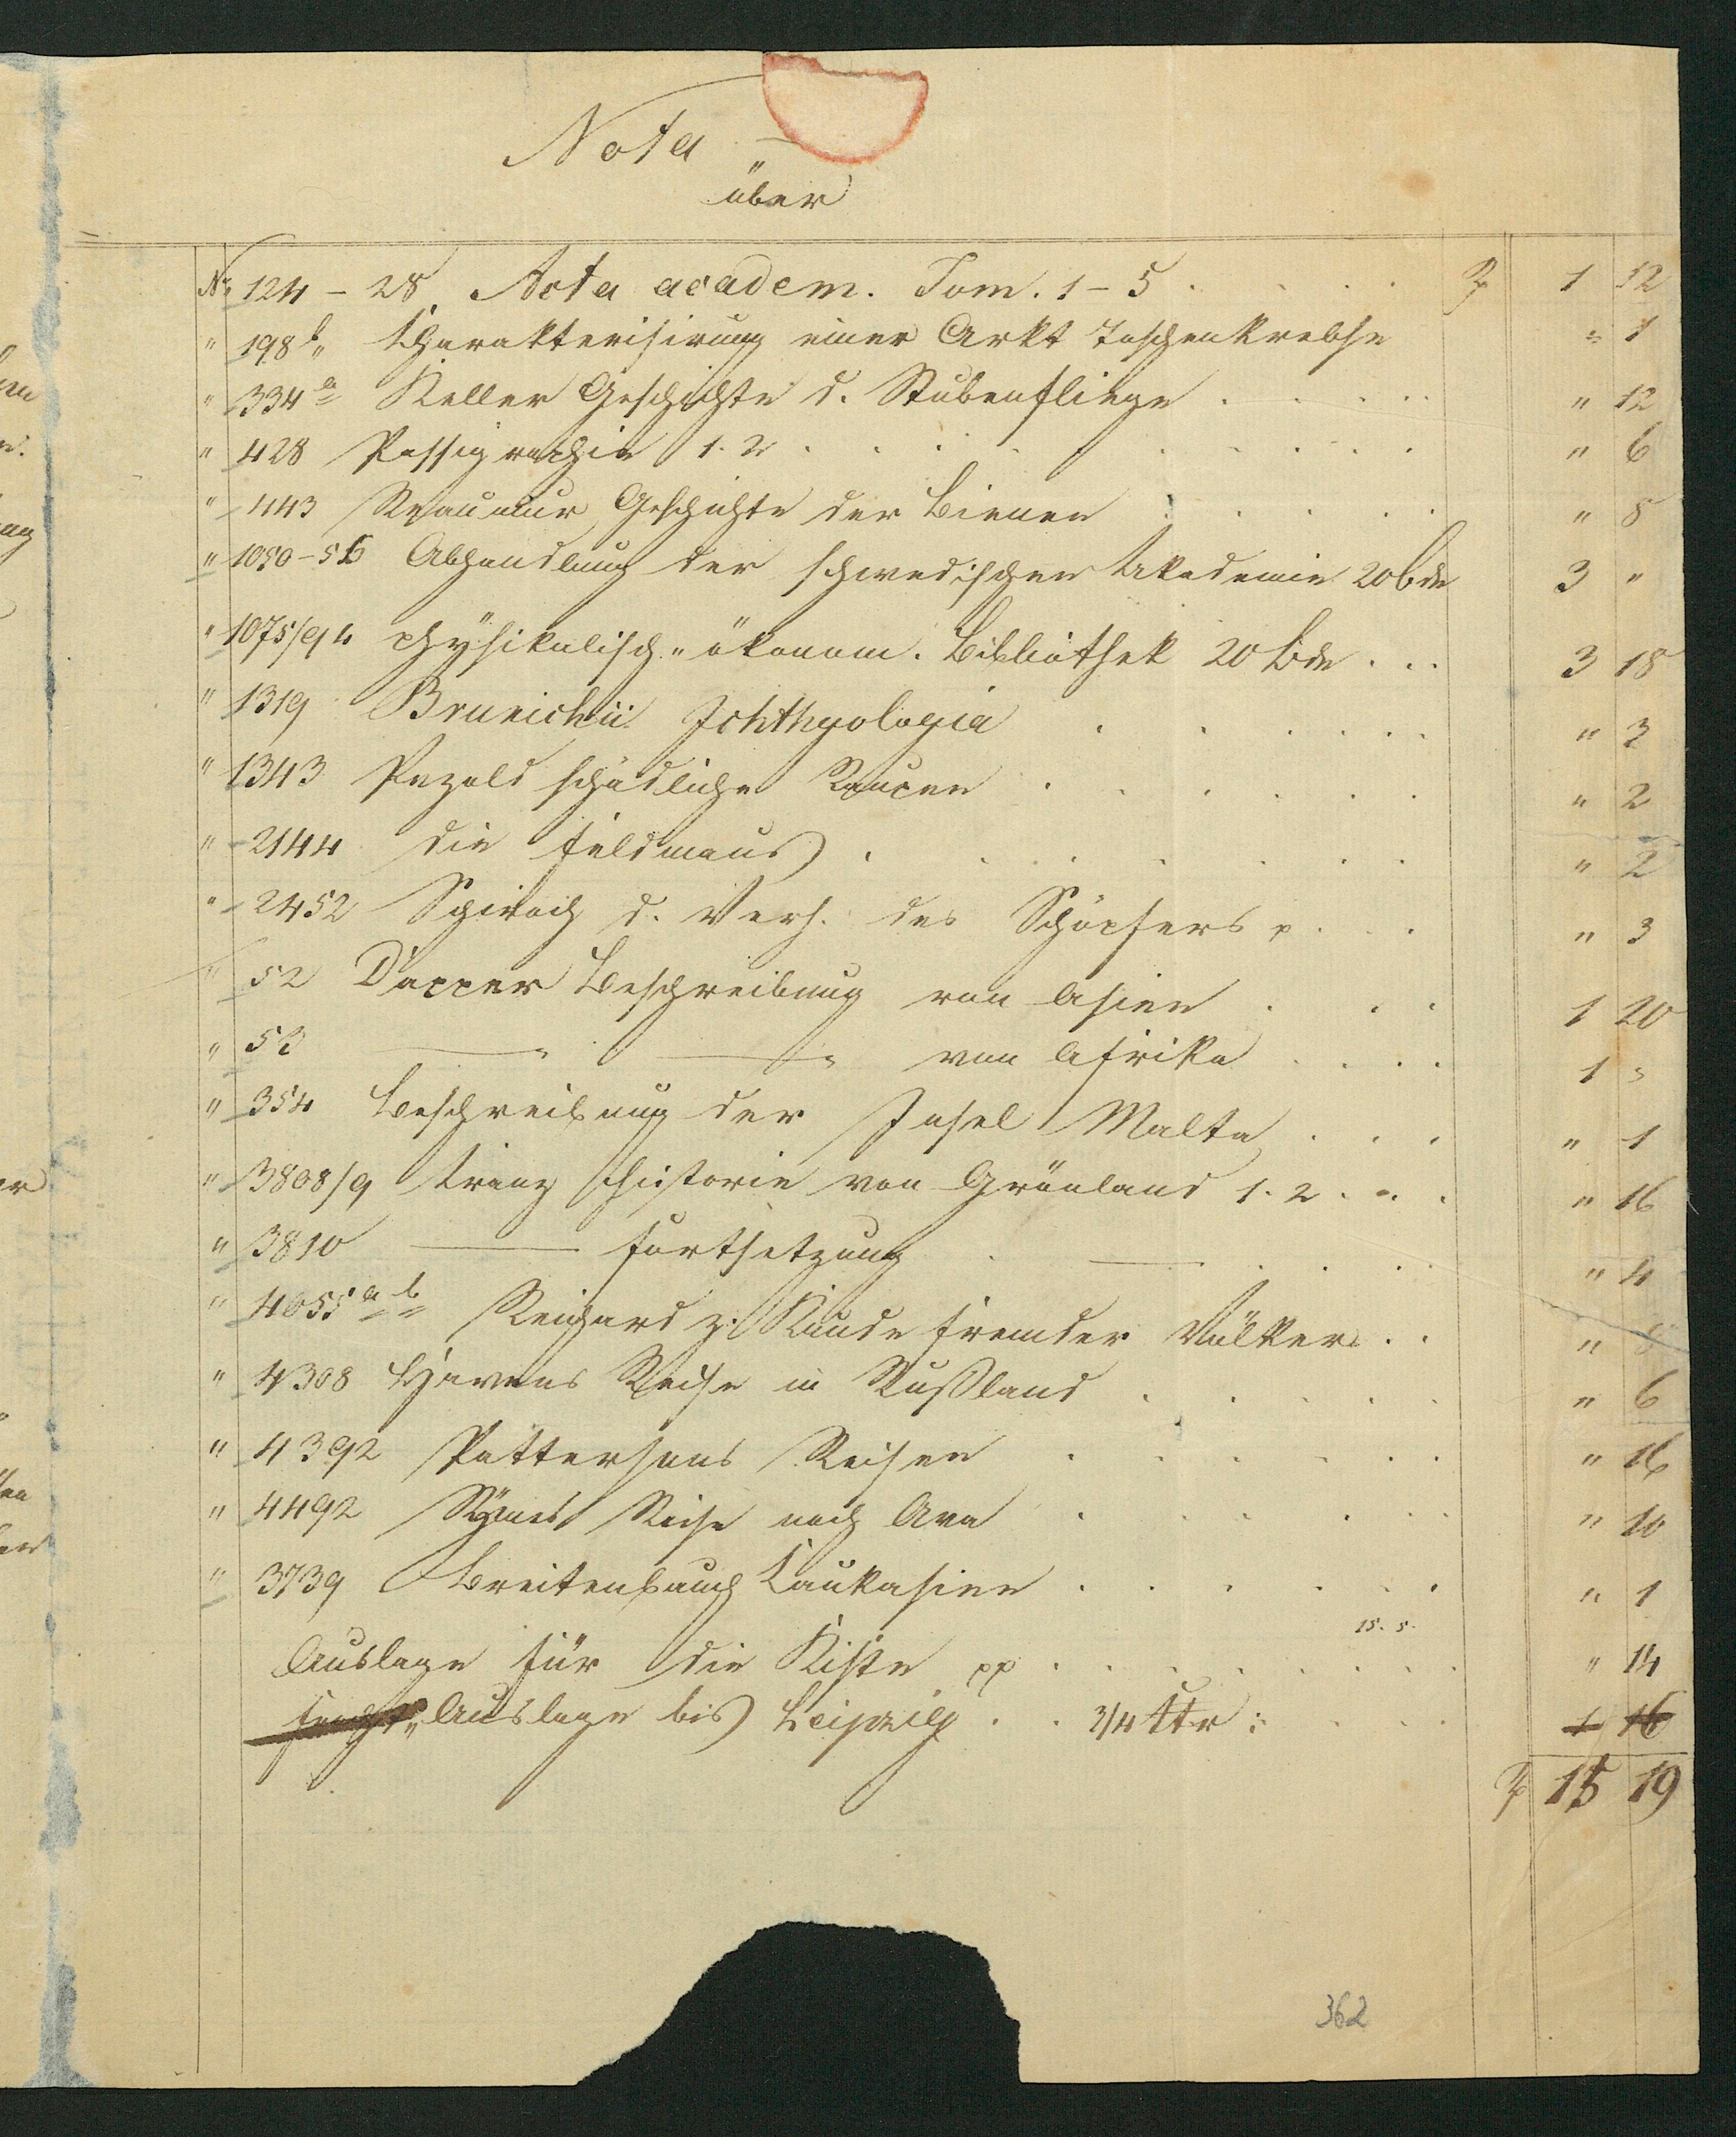 Nota
über
No 124 - 28. Acta academ. Tom. 1 - 5 . . . . ₰ 1 12
" 198 b " Charakterisirung einer Arkt Taschenkrebse " 1
" 334 a Keller Geschichte d. Stubenfliege . . . . . " 12
" 428 Passigraphie 1. 2 . . . . . . . . . " 6
" 443 Reaumur Geschichte der Bienen . . . . . " 8
" 1050-56 Abhandlung der schwedischen Akademie 20 bde 3 "
" 1075/94 physikalisch-ökonom. Bibliothek 20 Bde . . . 3 18
" 1319 Brunichii Ichthyologia . . . . . . " 3
" 1343 Pezold schädliche Raupen . . . . . . " 2
" 2144 die Feldmaus . . . . . . . " 2
" 2452 Schirach d. Verh. des Schöpfers p. . . . " 3
" 52 Dapper Beschreibung von Asien . . . 1 20
" 53 — " — " von Afrika . . . . 1 "
" 354 Beschreibung der Insel Malta . . . " 1
" 3808/9 Kranz Historie von Grönland 1. 2 . . . " 16
" 3810 — Fortsetzung . — . . . . " 4
" 4055 a b Reichard z. Kunde fremder Völker . . " 8
" 4308 Havens Reise in Rußland . . . . . " 6
" 4392 Pattersons Reisen . . . . . . " 16
" 4492 Symes Reise nach Ava . . . . . . " 10
" 3739 Breitenbauch Caukasien . . . . . . " 1
15. 5.
Auslage für die Kiste pp . . . . . . . . " 14
Fracht " Auslage bis Leipzig . . 3/4 Ctr : . . . 1 16
₰ 15 19
362